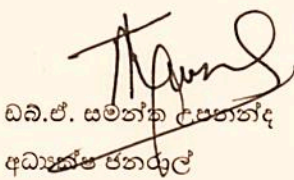 ඩබ්.ඒ. සමන්ත උපනන්ද
අධ්‍යක්ෂ ජනරාල්